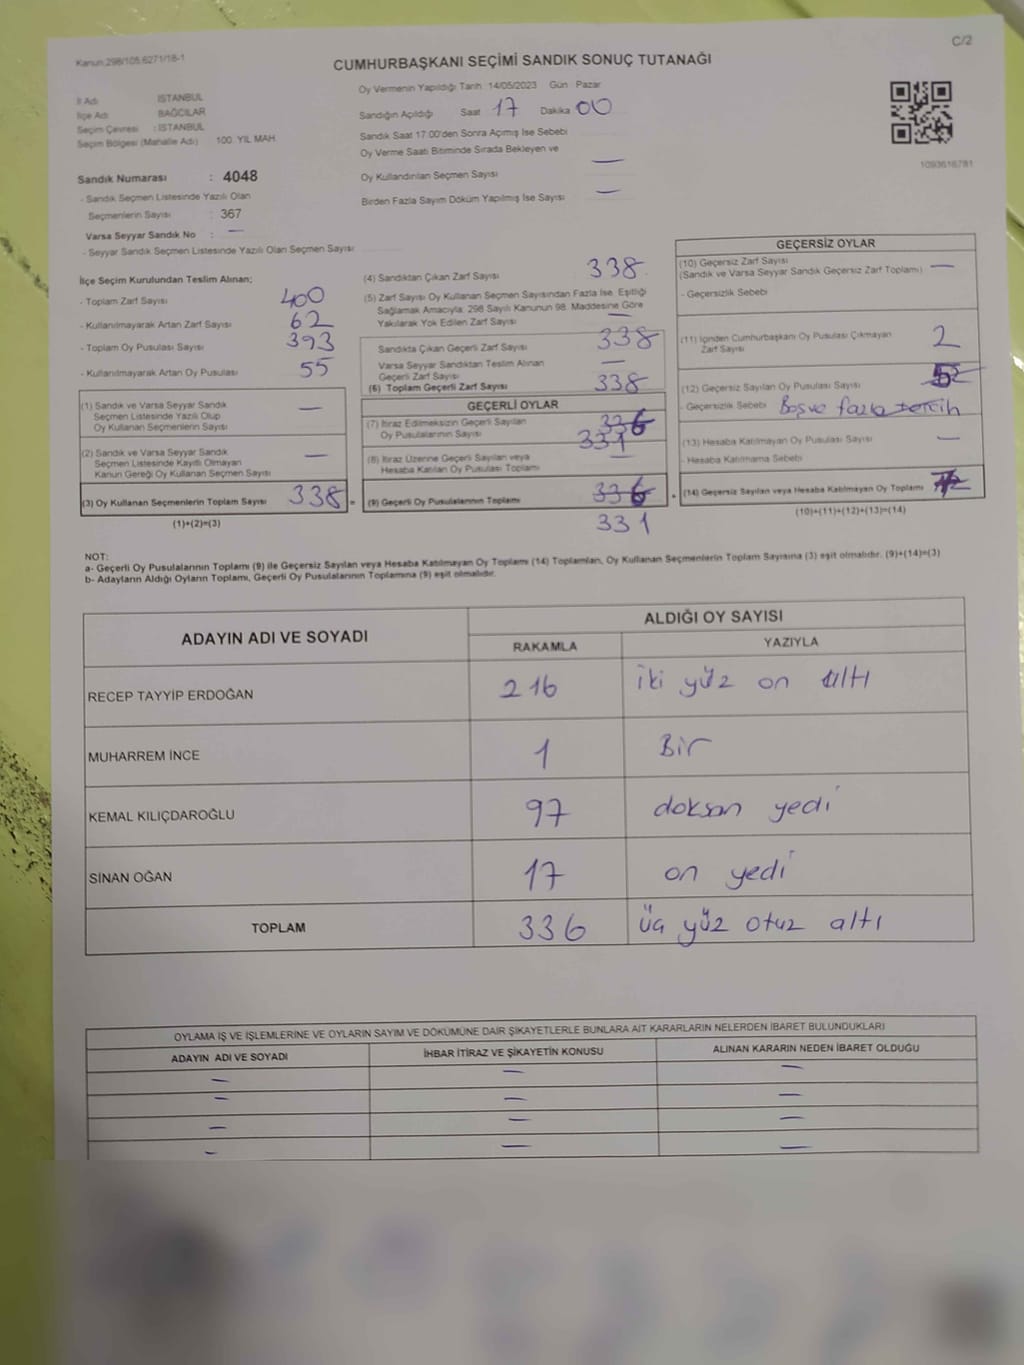 Kanun.298/105,6271/16-1
C/2
CUMHURBAŞKANI SEÇİMİ SANDIK SONUÇ TUTANAĞI
Oy Vermenin Yapıldığı Tarih: 14/05/2023 Gün Pazar
İl Adı : İSTANBUL
İlçe Adı : BAĞCILAR
Seçim Çevresi : İSTANBUL
Seçim Bölgesi (Mahalle Adı) : 100. YIL MAH.
Sandığın Açıldığı Saat 17 Dakika 00
Sandık Saat 17:00'den Sonra Açılmış İse Sebebi
Oy Verme Saati Bitiminde Sırada Bekleyen ve
Oy Kullandırılan Seçmen Sayısı —
Birden Fazla Sayım Döküm Yapılmış İse Sayısı —
1093616781
Sandık Numarası : 4048
- Sandık Seçmen Listesinde Yazılı Olan
Seçmenlerin Sayısı : 367
Varsa Seyyar Sandık No : —
- Seyyar Sandık Seçmen Listesinde Yazılı Olan Seçmen Sayısı
İlçe Seçim Kurulundan Teslim Alınan;
- Toplam Zarf Sayısı 400
- Kullanılmayarak Artan Zarf Sayısı 62
- Toplam Oy Pusulası Sayısı 393
- Kullanılmayarak Artan Oy Pusulası 55
(1) Sandık ve Varsa Seyyar Sandık —
Seçmen Listesinde Yazılı Olup
Oy Kullanan Seçmenlerin Sayısı
(2) Sandık ve Varsa Seyyar Sandık —
Seçmen Listesinde Kayıtlı Olmayan
Kanun Gereği Oy Kullanan Seçmen Sayısı
(3) Oy Kullanan Seçmenlerin Toplam Sayısı 338 =
(1)+(2)=(3)
(4) Sandıktan Çıkan Zarf Sayısı 338
(5) Zarf Sayısı Oy Kullanan Seçmen Sayısından Fazla İse, Eşitliği
Sağlamak Amacıyla; 298 Sayılı Kanunun 98. Maddesine Göre
Yakılarak Yok Edilen Zarf Sayısı —
Sandıkta Çıkan Geçerli Zarf Sayısı 338
Varsa Seyyar Sandıktan Teslim Alınan
Geçerli Zarf Sayısı —
(6) Toplam Geçerli Zarf Sayısı 338
GEÇERLİ OYLAR
(7) İtiraz Edilmeksizin Geçerli Sayılan 336
Oy Pusulalarının Sayısı 331
(8) İtiraz Üzerine Geçerli Sayılan veya —
Hesaba Katılan Oy Pusulası Toplamı
(9) Geçerli Oy Pusulalarının Toplamı 336 +
331
GEÇERSİZ OYLAR
(10) Geçersiz Zarf Sayısı —
(Sandık ve Varsa Seyyar Sandık Geçersiz Zarf Toplamı)
- Geçersizlik Sebebi
(11) İçinden Cumhurbaşkanı Oy Pusulası Çıkmayan 2
Zarf Sayısı
(12) Geçersiz Sayılan Oy Pusulası Sayısı
- Geçersizlik Sebebi Boş ve fazla tercih
(13) Hesaba Katılmayan Oy Pusulası Sayısı —
- Hesaba Katılmama Sebebi
(14) Geçersiz Sayılan veya Hesaba Katılmayan Oy Toplamı
(10)+(11)+(12)+(13)=(14)
NOT:
a- Geçerli Oy Pusulalarının Toplamı (9) ile Geçersiz Sayılan veya Hesaba Katılmayan Oy Toplamı (14) Toplamları, Oy Kullanan Seçmenlerin Toplam Sayısına (3) eşit olmalıdır. (9)+(14)=(3)
b- Adayların Aldığı Oyların Toplamı, Geçerli Oy Pusulalarının Toplamına (9) eşit olmalıdır.
ADAYIN ADI VE SOYADI
ALDIĞI OY SAYISI
RAKAMLA YAZIYLA
RECEP TAYYİP ERDOĞAN 216 iki yüz on altı
MUHARREM İNCE 1 Bir
KEMAL KILIÇDAROĞLU 97 doksan yedi
SİNAN OĞAN 17 on yedi
TOPLAM 336 üç yüz otuz altı
OYLAMA İŞ VE İŞLEMLERİNE VE OYLARIN SAYIM VE DÖKÜMÜNE DAİR ŞİKAYETLERLE BUNLARA AİT KARARLARIN NELERDEN İBARET BULUNDUKLARI
ADAYIN ADI VE SOYADI İHBAR İTİRAZ VE ŞİKAYETİN KONUSU ALINAN KARARIN NEDEN İBARET OLDUĞU
— — —
— — —
— — —
— — —